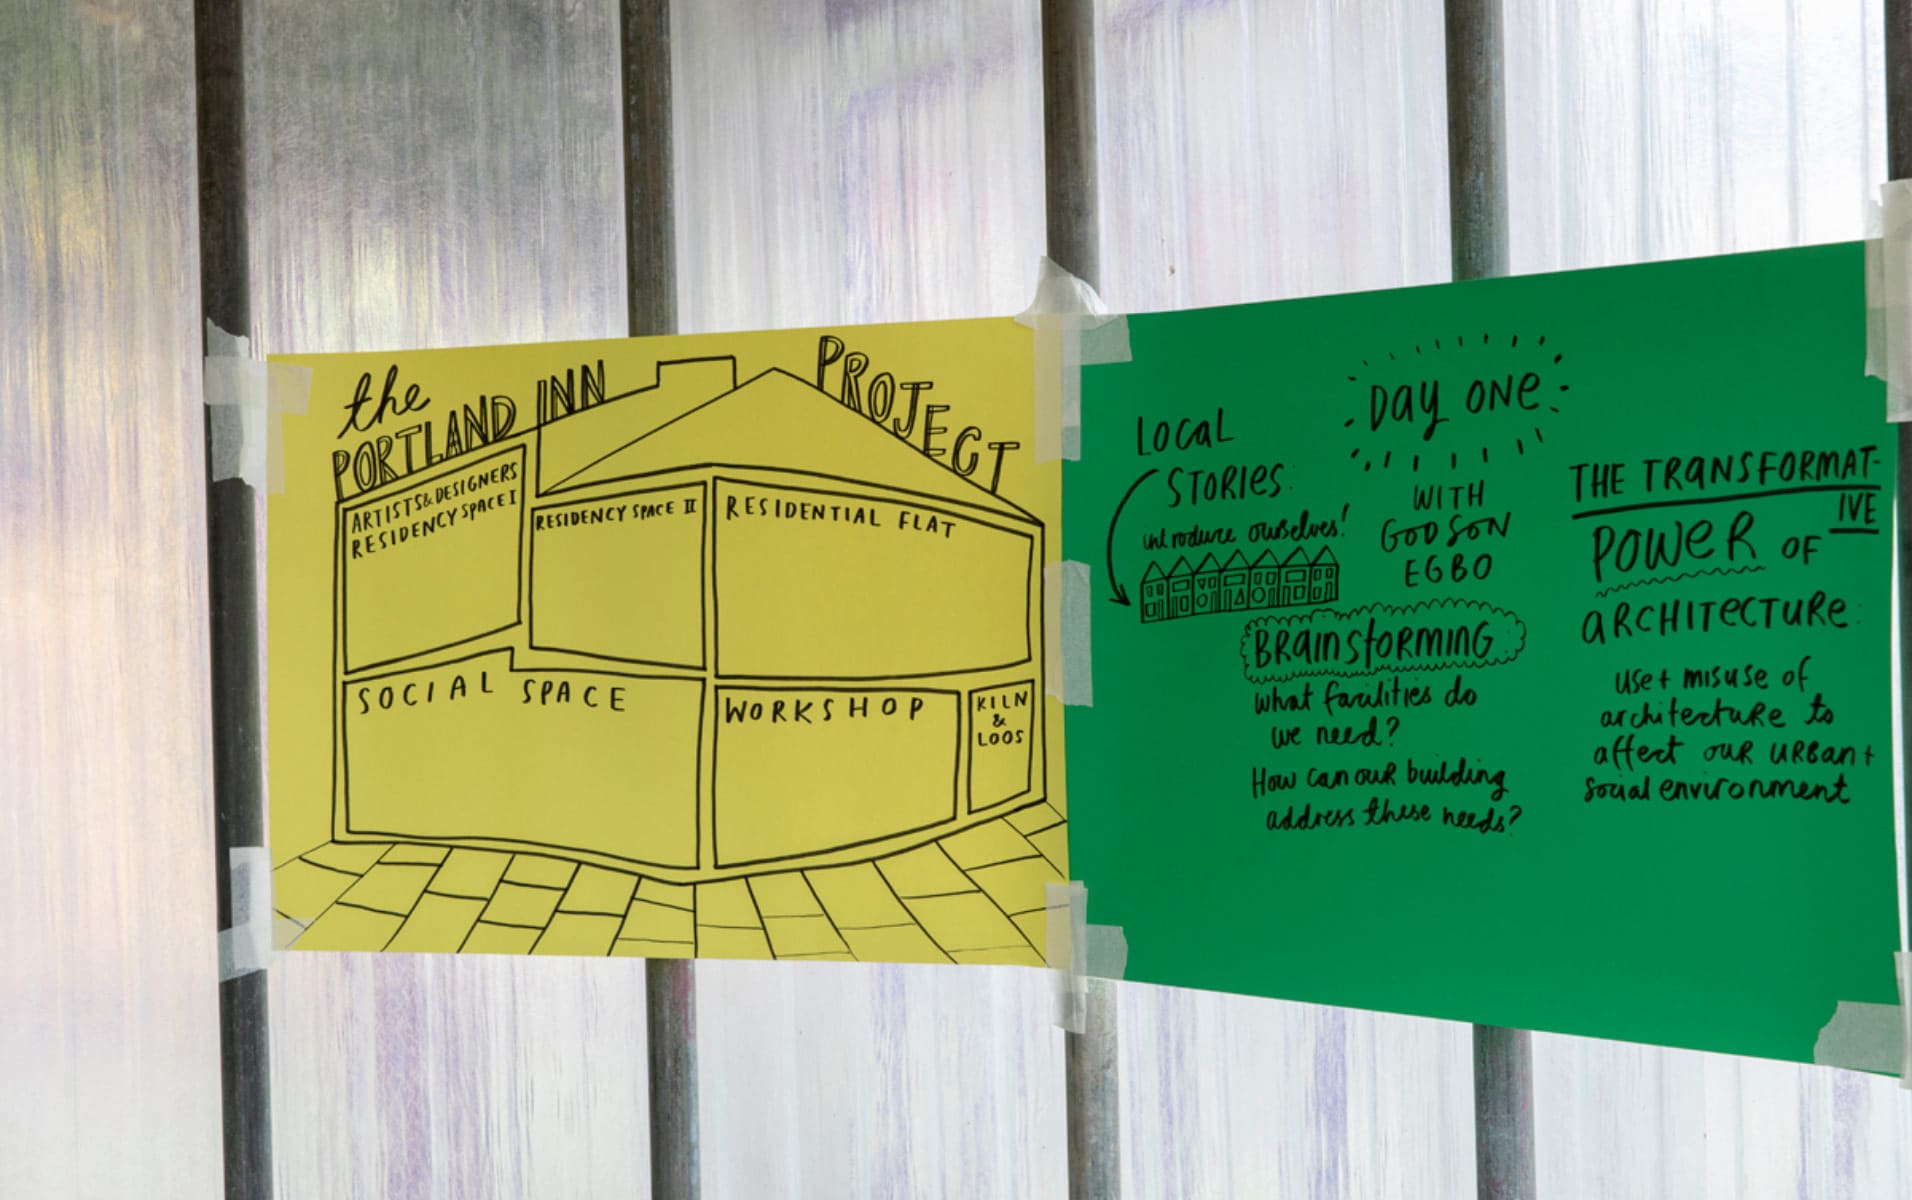 the
PORTLAND INN PROJECT
ARTISTS & DESIGNERS
RESIDENCY SPACE I
RESIDENCY SPACE II
RESIDENTIAL FLAT
SOCIAL SPACE
WORKSHOP
KILN
&
LOOS
LOCAL
STORIES:
introduce ourselves!
DAY ONE
WITH
GODSON
EGBO
BRAINSTORMING
what facilities do
we need?
How can our building
address these needs?
THE TRANSFORMAT-
IVE
POWER OF
ARCHITECTURE:
use + misuse of
architecture to
affect our URBAN +
social environment